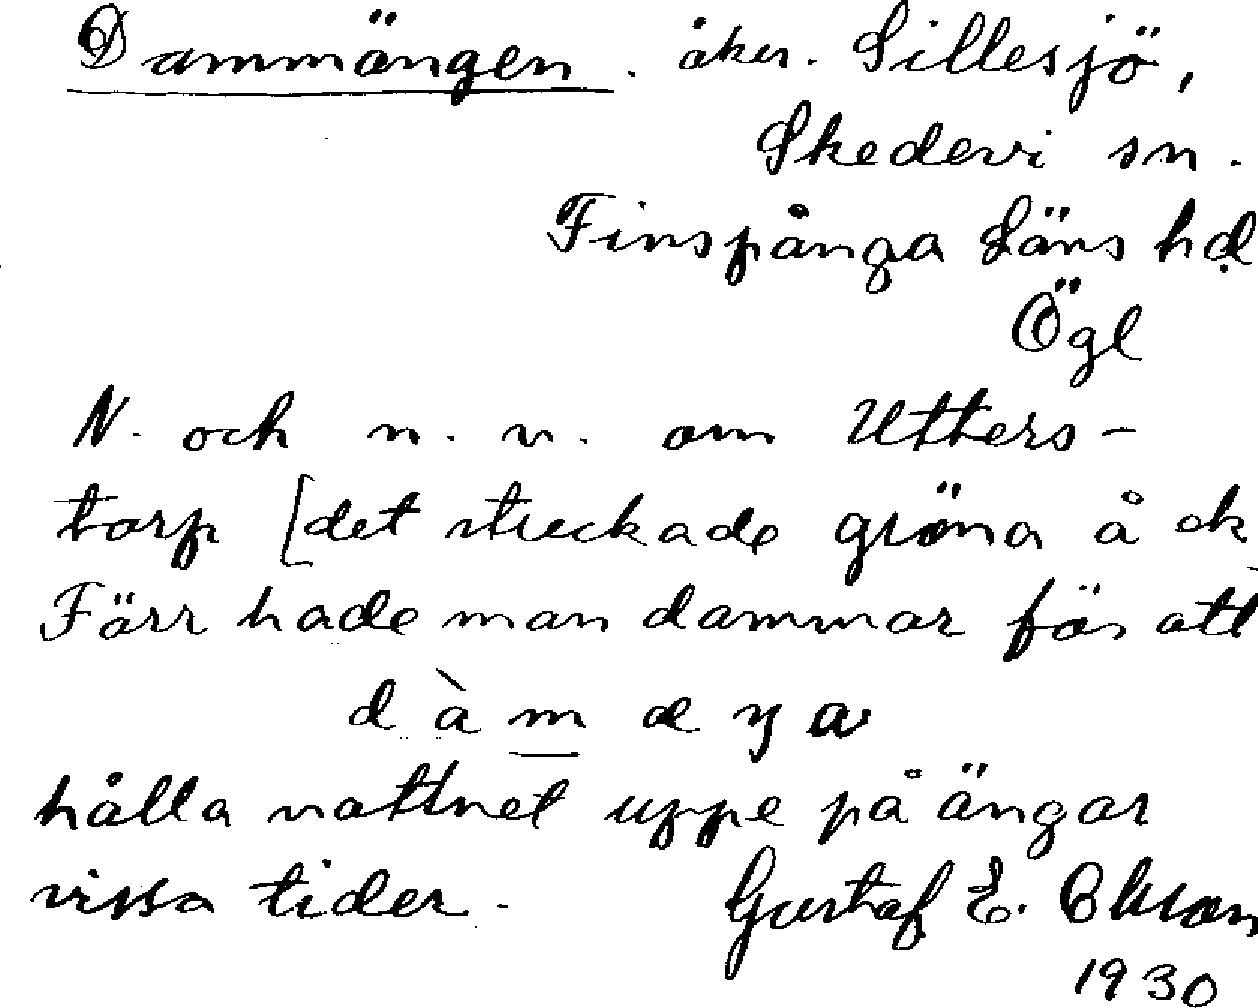 Dammängen. åker. Sillesjö,
Skedevi sn.
Finspånga Läns hd
Ögl
N. och n. v. om Utters-
torp [det streckade gröna å ek
Förr hade man dammar för att
hålla vattnet uppe på ängar
vissa tider. Gustaf E. Olsson
1930